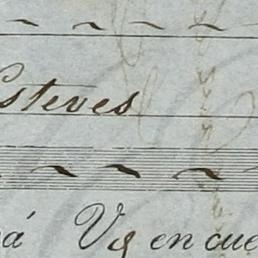 Esteves
á Vg en cue